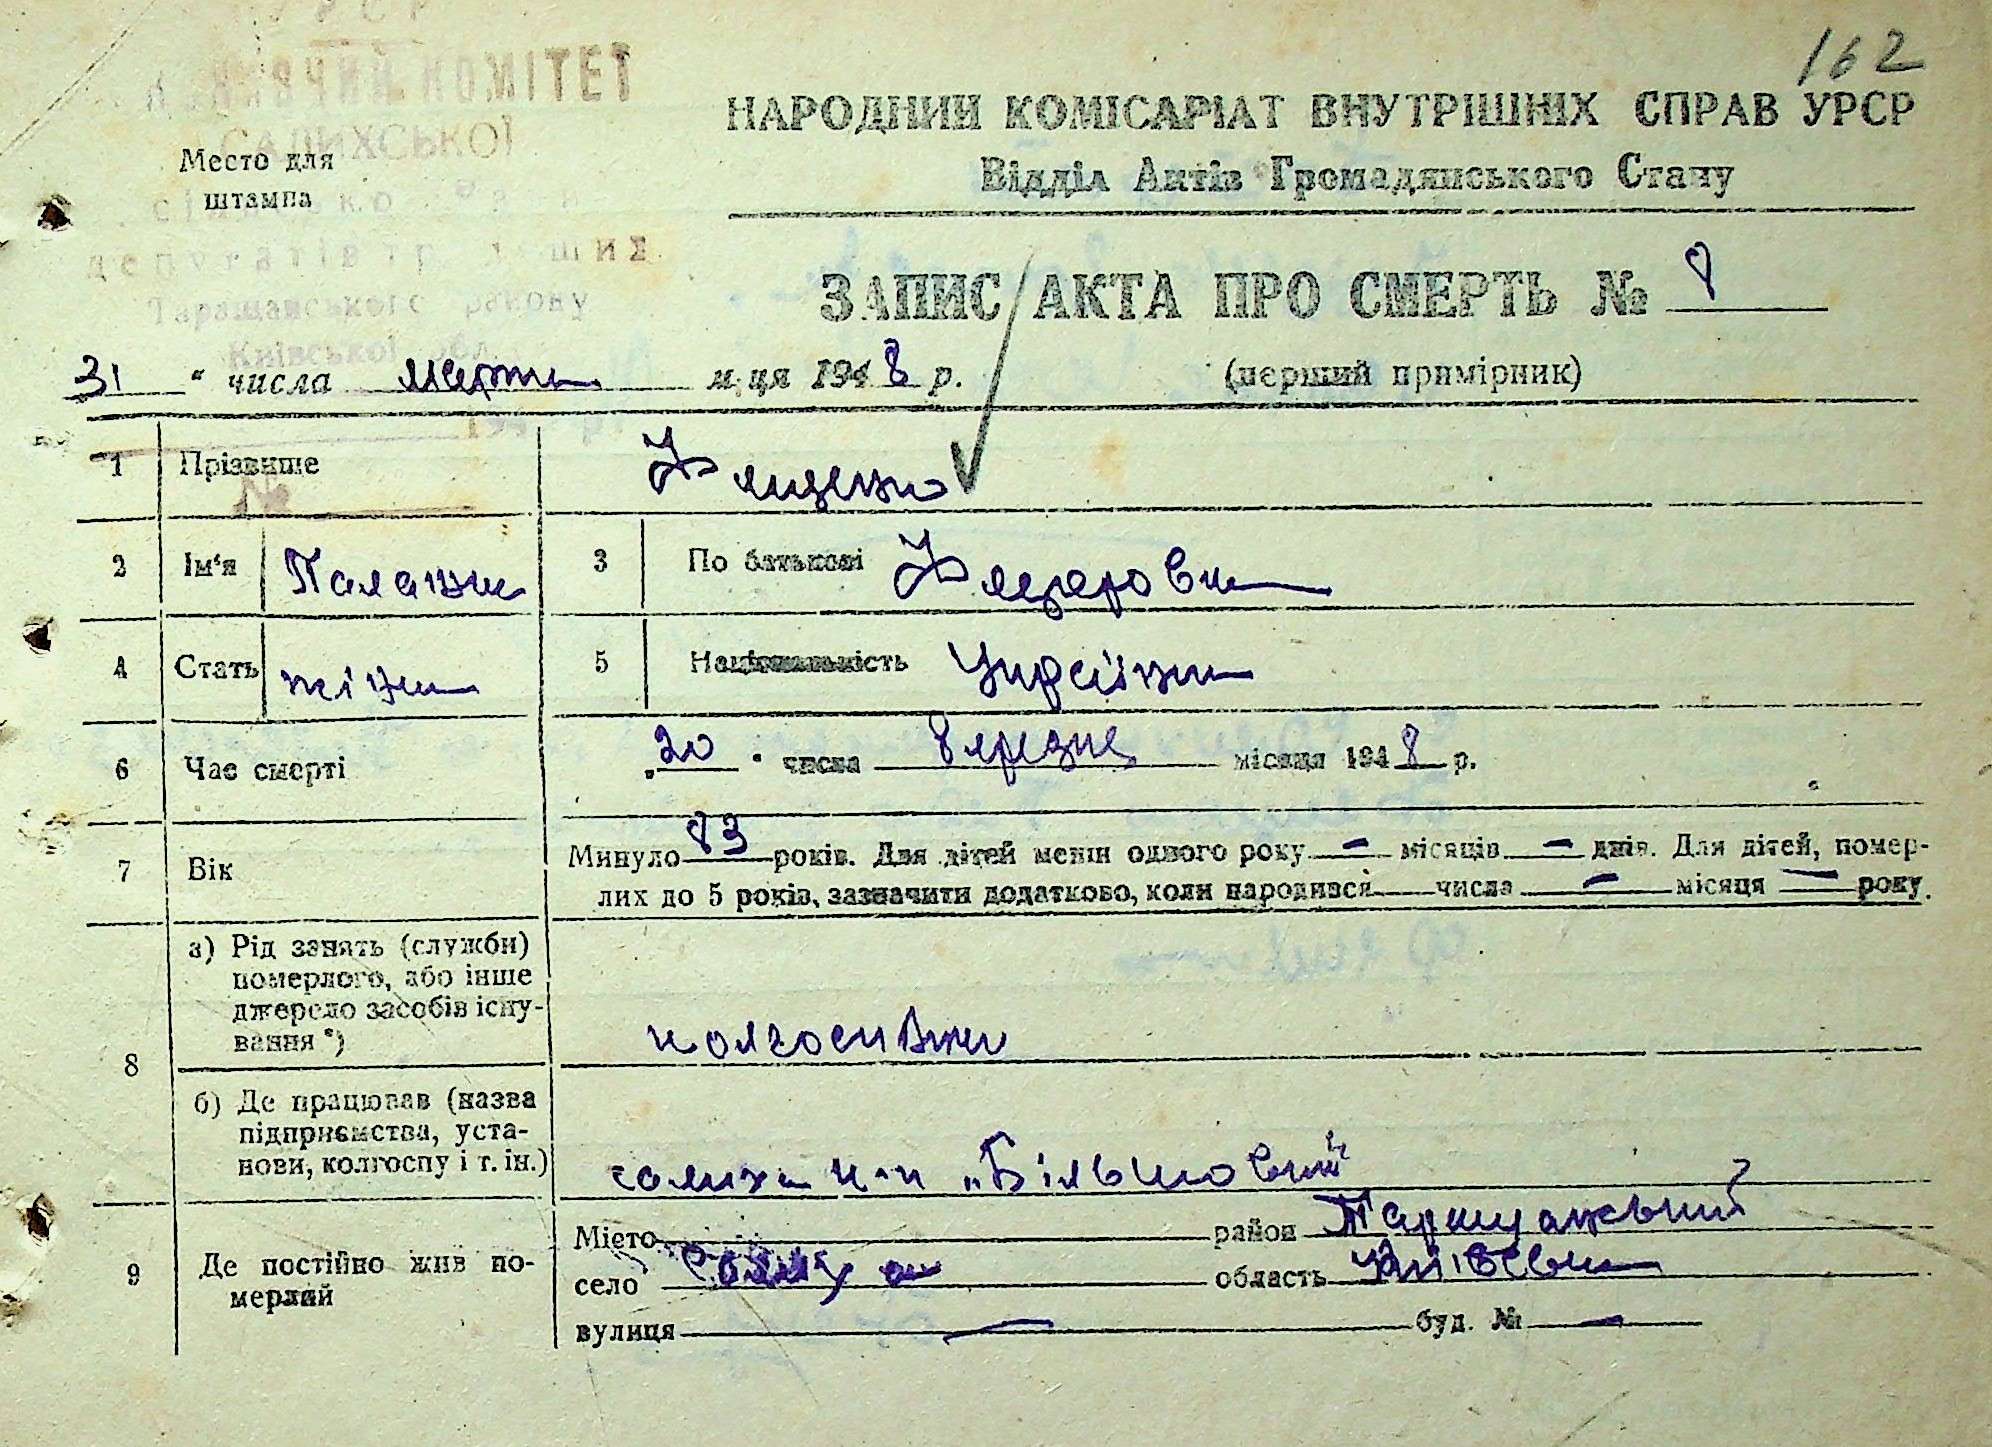 162
УРСР
КОМІТЕТ
САЛИХСЬКОЇ
депутатів трудящих
Таращанського району
Київської обл.
194 р.
№
Место для
штампа
НАРОДНИЙ КОМІСАРІАТ ВНУТРІШНІХ СПРАВ УРСР
Відділ Актів Громадянського Стану
ЗАПИС АКТА ПРО СМЕРТЬ № 8
31 " числа марта м-ця 1948 р. (перший примірник)
1 Прізвище
2 Ім'я Палажка 3 По батькові Федоровна
4 Стать жіноч 5 Національність Українка
6 Час смерті „20" числа березня місяця 1948 р.
7 Вік Минуло 83 років. Для дітей менш одного року — місяців — днів. Для дітей, помер-
лих до 5 років, зазначити додатково, коли народився числа — місяця — року.
8 а) Рід занять (служби)
померлого, або інше
джерело засобів існу-
вання *) колгоспниця
б) Де працював (назва
підприємства, уста-
нови, колгоспу і т. ін.) к-п „Більшовик"
9 Де постійно жив по-
мерлий
Місто район Таращанський
село область Київська
вулиця — буд. № —